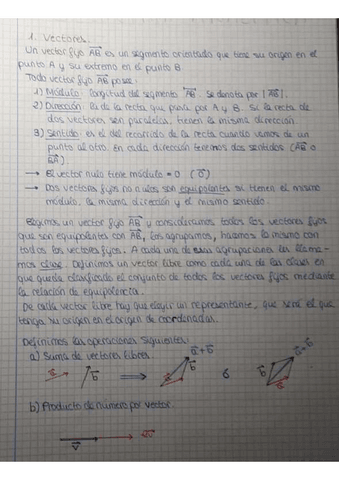 1. Vectores.
Un vector fijo AB es un segmento orientado que tiene su origen en el
punto A y su extremo en el punto B.
Todo vector fijo AB posee:
1) Módulo: longitud del segmento AB. Se denota por |AB|.
2) Dirección: la de la recta que pasa por A y B. Si la recta de
dos vectores son paralelas, tienen la misma dirección.
3) Sentido: es el del recorrido de la recta cuando vamos de un
punto al otro. En cada dirección tenemos dos sentidos (AB o
BA)
→ El vector nulo tiene módulo = 0 (0)
→ Dos vectores fijos no nulos son equipolentes si tienen el mismo
módulo, la misma dirección y el mismo sentido.
Elegimos un vector fijo AB y consideramos todos los vectores fijos
que son equipolentes con AB, los agrupamos, hacemos lo mismo con
todos los vectores fijos. A cada una de esas agrupaciones las llama-
mos clase. Definimos un vector libre como cada una de las clases en
que queda clasificado el conjunto de todos los vectores fijos mediante
la relación de equipolencia.
De cada vector libre hay que elegir un representante, que será el que
tenga su origen en el origen de coordenadas.
Definimos las operaciones siguientes:
a) Suma de vectores libres.
a b ⇒ a b a+b ó b a a+b
b) Producto de número por vector.
v